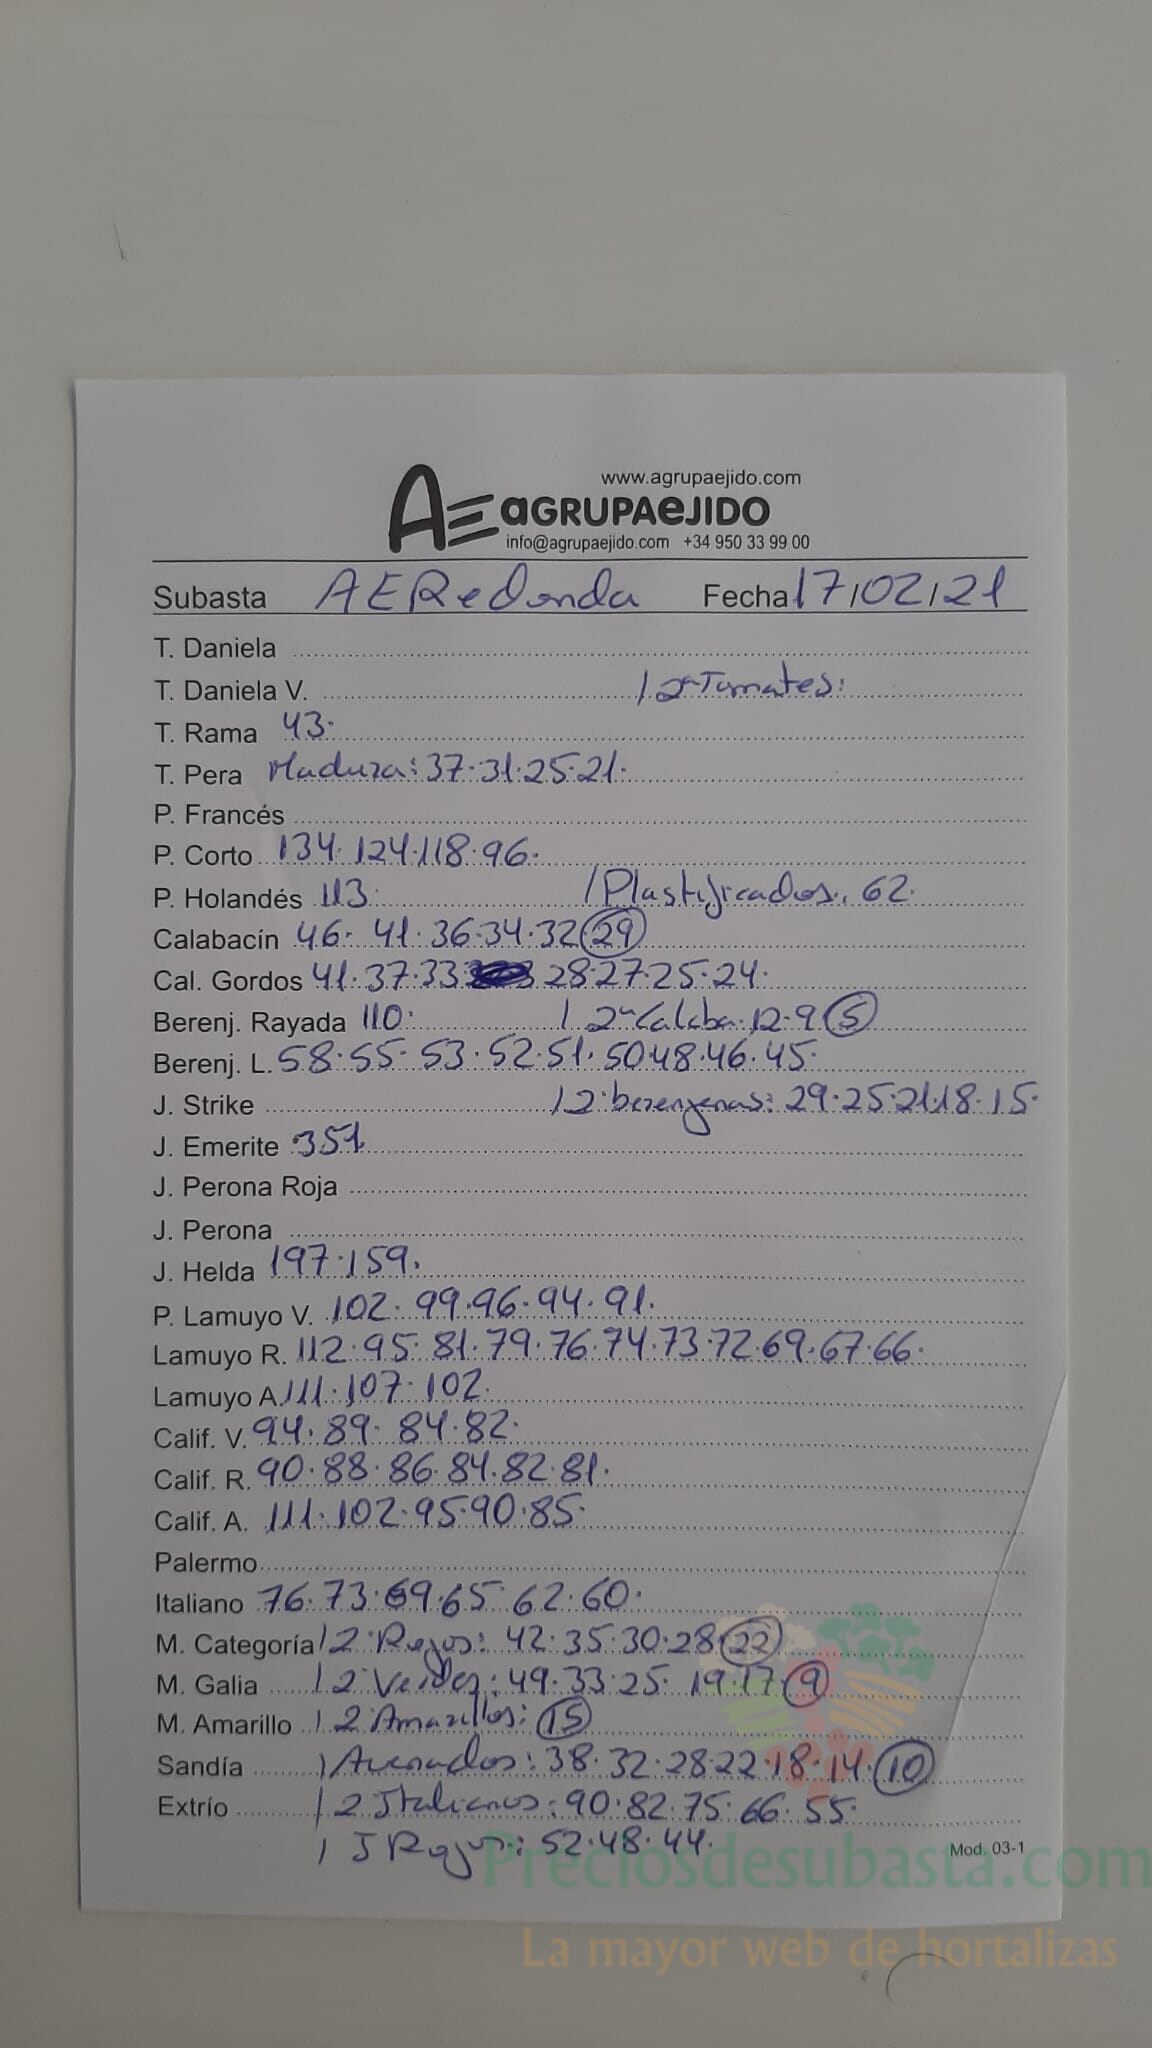 www.agrupaejido.com
AE aGRUPAeJIDO
info@agrupaejido.com +34 950 33 99 00
Subasta AERedonda Fecha 17/02/21
T. Daniela
T. Daniela V. / 2ª Tomates:
T. Rama 43.
T. Pera Madura: 37.31.25.21.
P. Francés
P. Corto 134.124.118.96.
P. Holandés 113. / Plastificados. 62.
Calabacín 46. 41.36.34.32 29
Cal. Gordos 41.37.33. 28.27.25.24.
Berenj. Rayada 110. / 2ª Calaba. 12.9 5
Berenj. L. 58.55.53.52.51.50.48.46.45.
J. Strike / 2ª berenjenas: 29.25.21.18.15.
J. Emerite 351.
J. Perona Roja
J. Perona
J. Helda 197.159.
P. Lamuyo V. 102.99.96.94.91.
Lamuyo R. 112.95.81.79.76.74.73.72.69.67.66.
Lamuyo A. 111.107.102.
Calif. V. 94.89.84.82.
Calif. R. 90.88.86.84.82.81.
Calif. A. 111.102.95.90.85.
Palermo
Italiano 76.73.69.65.62.60.
M. Categoría / 2ª Rojos: 42.35.30.28. 22
M. Galia / 2ª Verdes: 49.33.25.19.17. 9
M. Amarillo / 2ª Amarillos: 15
Sandía / Asurados: 38.32.28.22.18.14. 10
Extrío / 2 Italianos: 90.82.75.66.55.
/ J Rojos: 52.48.44.
Mod. 03-1
Preciosdesubasta.com
La mayor web de hortalizas